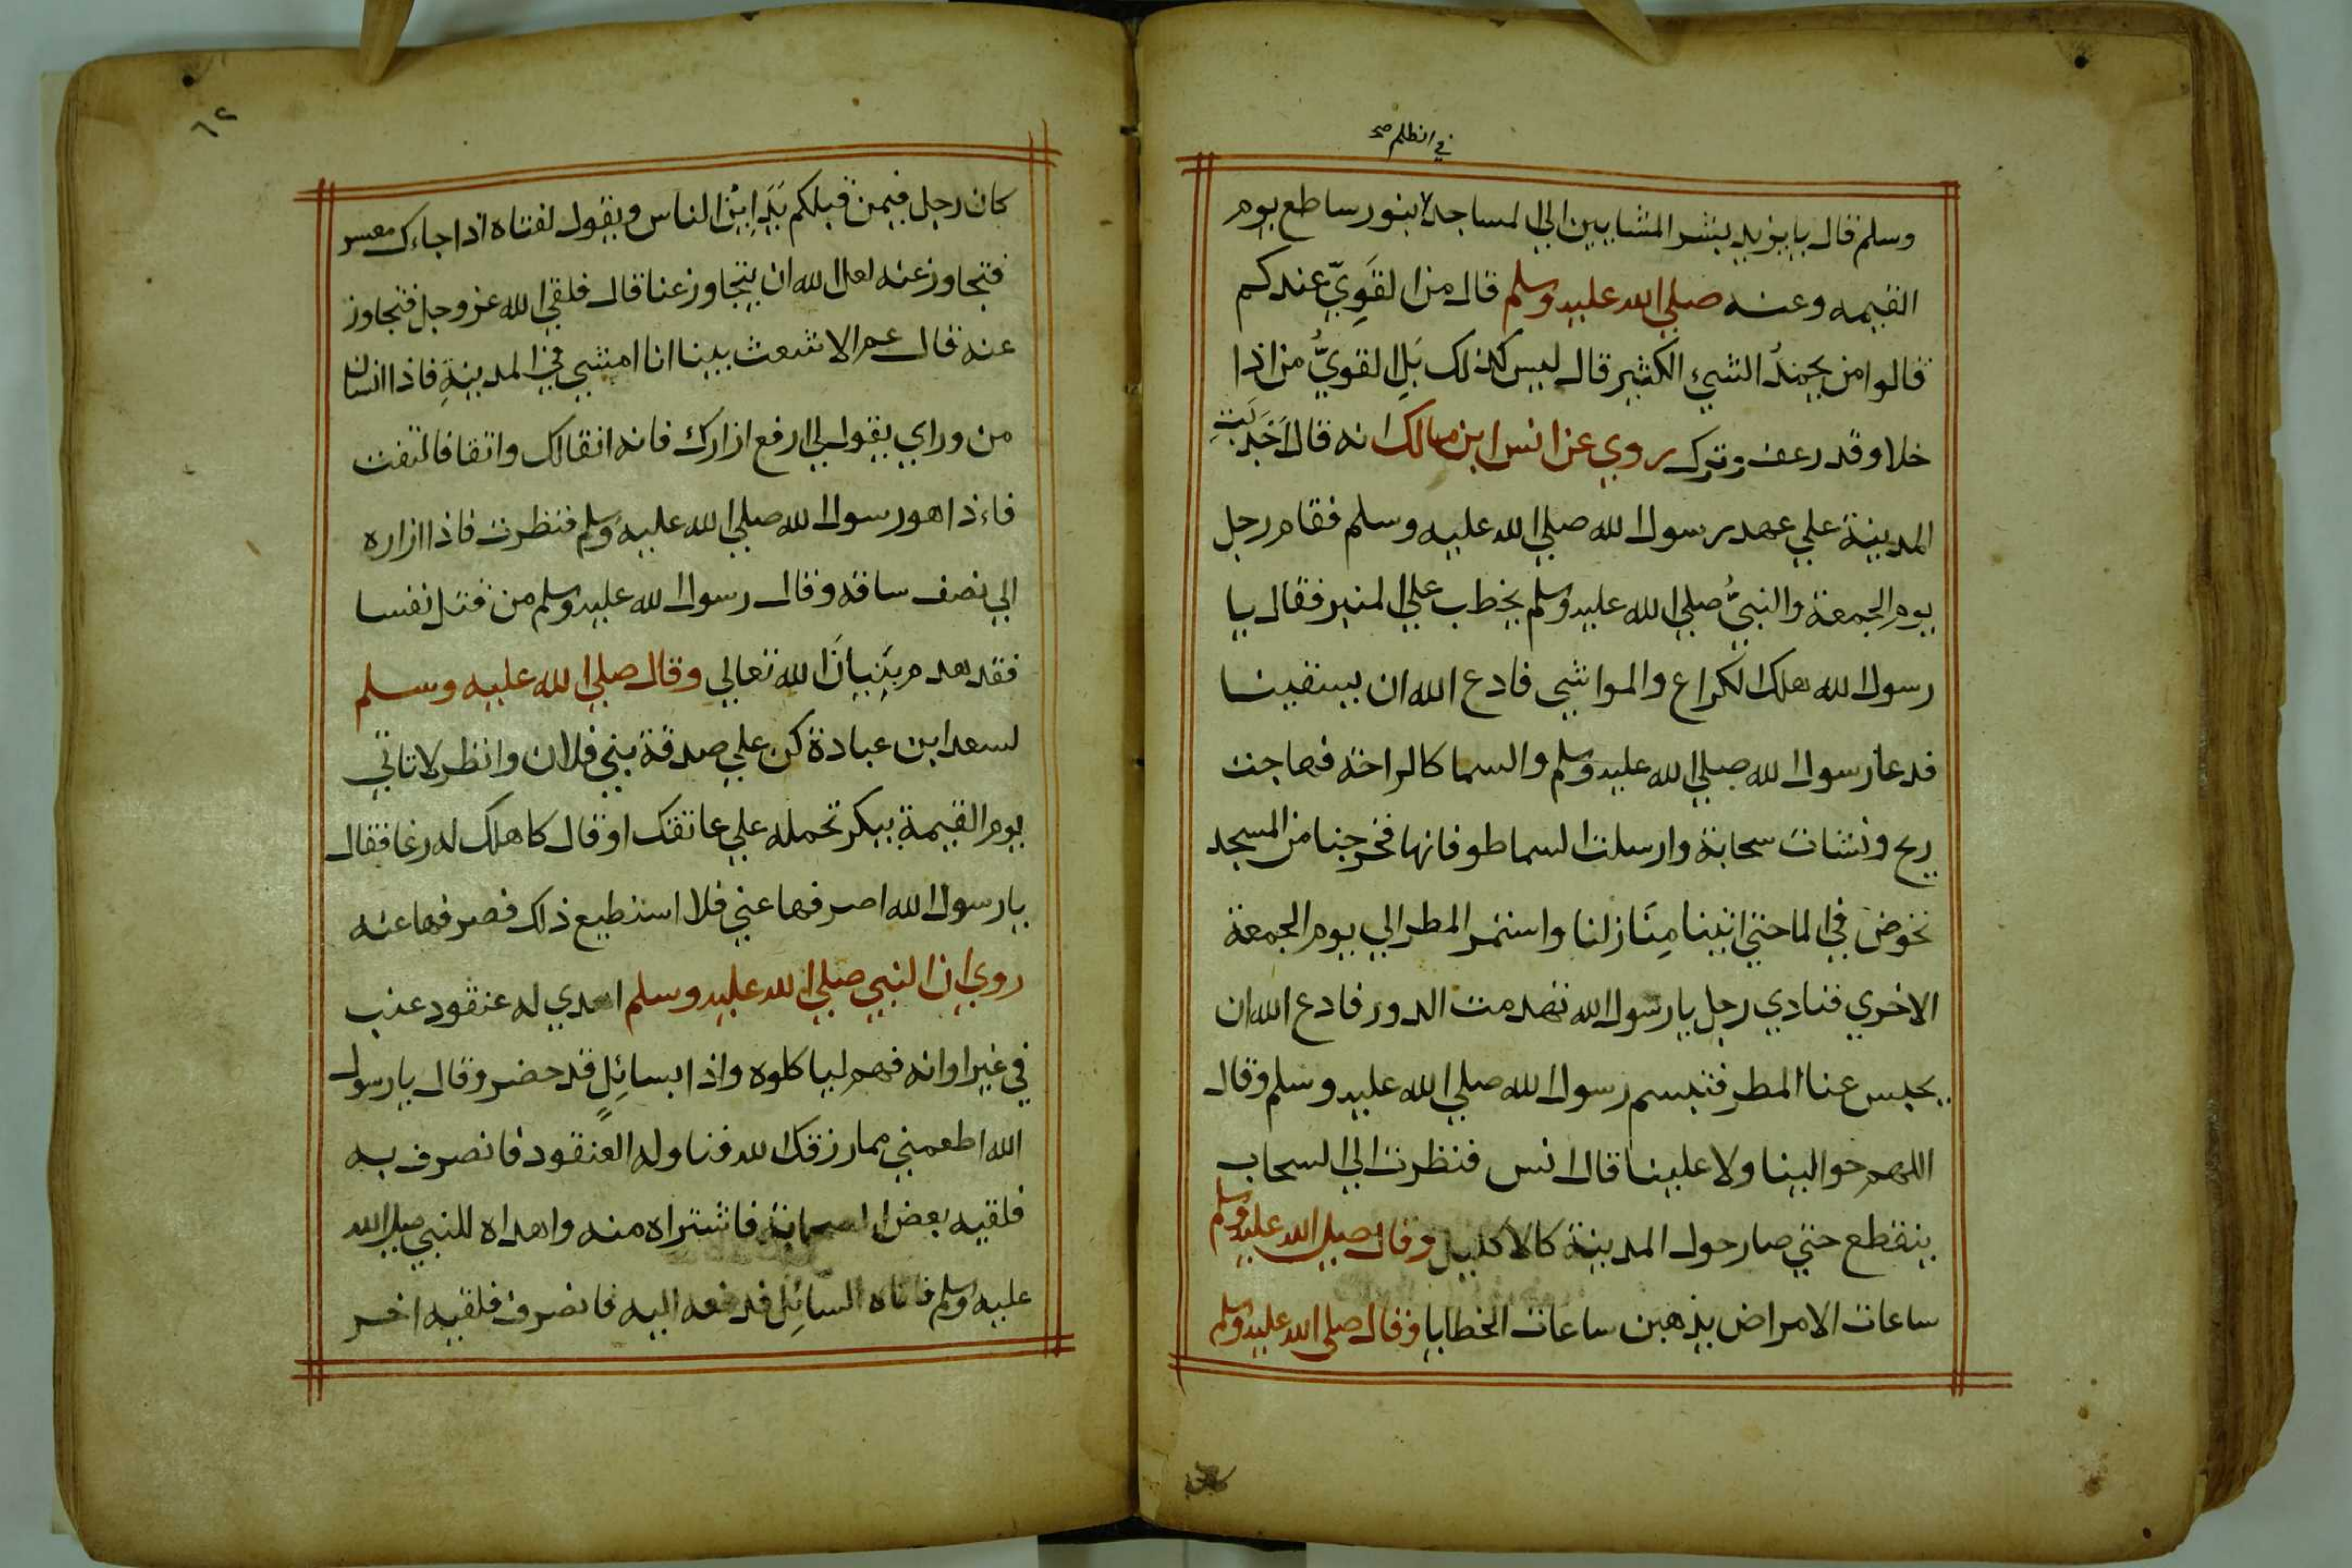 في الظلم صح
وسلم قال يا بزيد بشر المشايين الي المساجد لا بنور ساطع يوم
القيمه وعنه صلي الله عليه وسلم قال من القَوِيّ عندكم
قالوا من يجمدُ الشيء الكثير قال ليس كذلك بَلِ القويُّ من اذا
خلا وقد رعف وترك روي عن انس ابن مالك انه قال اَجْدَبَت
المدينة علي عهد رسول الله صلي الله عليه وسلم فقام رجل
يوم الجمعة والنبيُّ صلي الله عليه وسلم يخطب علي المنبر فقال يا
رسول الله هلك الكراع والمواشي فادع الله ان يسقينا
فدعا رسول الله صلي الله عليه وسلم والسما كالراحة فهاجت
ريح ونشات سحابة وارسلت السما طوفانها فخرجنا من المسجد
نخوض في الما حتي اتينا مِنَازلنا واستمر المطر الي يوم الجمعة
الاخري فنادي رجل يا رسول الله تهدمت الدور فادع الله ان
يحبس عنا المطر فتبسم رسول الله صلي الله عليه وسلم وقال
اللهم حوالينا ولا علينا قال انس فنظرت الي السحاب
ينقطع حتي صار حول المدينة كالاكليل وقال صلي الله عليه وسلم
ساعات الامراض يذهبن ساعات الخطايا وقال صلي الله عليه وسلم
كان
٦٢
كان رجل فيمن قبلكم يَدَايِنُ الناس ويقول لفتاه اذا جاءك معسر
فتجاوز عنه لعل الله ان يتجاوز عنا قال فلقي الله عز وجل فتجاوز
عنه قال عم الاشعث بينا انا امشي في المدينةِ فاذا انسان
من وراي يقول لي ارفع ازارك فانه انقالك واتقا فالتفت
فاءذا هو رسول الله صلي الله عليه وسلم فنظرت فاذا ازاره
الي نصف ساقه وقال رسول الله عليه وسلم من قتل نفسا
فقد هدم بِنيانَ الله تعالي وقال صلي الله عليه وسلم
لسعد ابن عبادة كن علي صدقة بني فلان وانظر لا تاتي
يوم القيمة ببكر تحمله علي عاتقك او قال كاهلك له رغا فقال
يا رسول الله اصرفها عني فلا استطيع ذلك فصرفها عنه
روي ان النبي صلي الله عليه وسلم اهدي له عنقود عنب
في غير اوانه فهم لياكلوه واذا بسائِلٍ قد حضر وقال يا رسول
الله اطعمني مما رزقك الله فناوله العنقود فانصرف به
فلقيه بعض الصحابة فاشتراه منه واهداه للنبي صلي الله
عليه وسلم فاتاه السائِل فدفعه اليه فانصرف فلقيه اخر